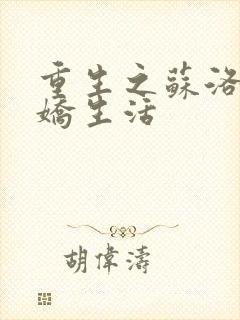 重生之蘇洛
嬌生活
胡偉濤